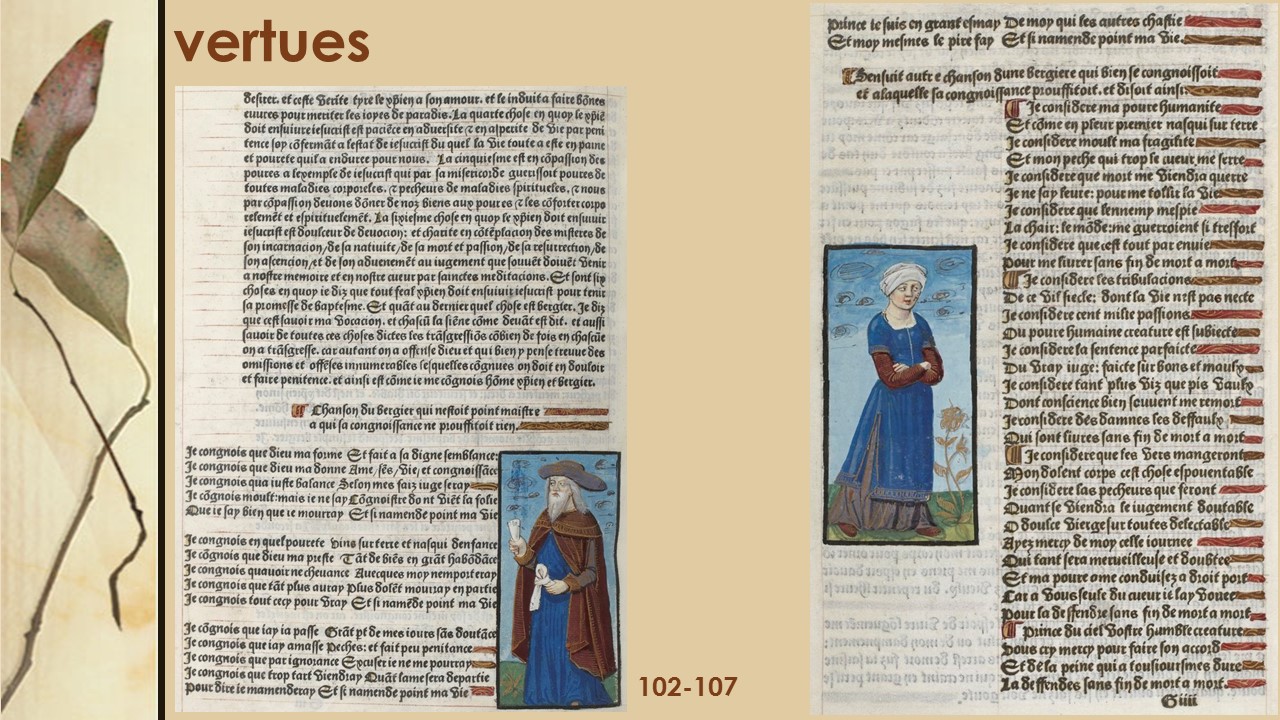 vertues
desirer. et ceste verite tyre le xp̄ien a son amour. et le induit a faire bōnes
euures pour meriter les ioyes de paradis. La quarte chose en quoy le xp̄iē
doit ensuiure iesucrist est paciēce en aduersite ⁊ en aspreite de vie par peni
tence soy cōfermāt a lestat de iesucrist du quel la vie toute a este en paine
et pourete quil a endurce pour nous. La cinquiesme est en cōpassion des
poures a lexemple de iesucrist qui par sa misericorde guerissoit poures de
toutes maladies corporeles, ⁊ pecheurs de maladies spirituelles, ⁊ nous
par cōpassion deuons dōner de noz biens aux poures ⁊ les cōforter corpo
relemēt et espirituelemēt. La sixiesme chose en quoy le xp̄ien doit ensuiuir
iesucrist est douleur de deuocion: et charite en cōtēplacion des misteres de
son incarnacion/de sa natiuite/de sa mort et passion/de sa resurrection/de
son ascencion/et de son aduenemēt au iugement que souuēt doiuēt venir
a nostre memoire et en nostre cueur par sainctes meditacions. Et sont six
choses en quoy ie diz que tout feal xp̄ien doit ensuiuir iesucrist pour tenir
sa promesse de baptesme. Et quāt au dernier quel chose est bergier. Je diz
que cest sauoir ma vocacion. et chascū la siēne cōme deuāt est dit. et aussi
sauoir de toutes ces choses dictes les trāsgressiōs cōbien de fois en chascūe
on a trāsgresse. car autant on a offense dieu et qui bien y pense treuue des
omissions et offēses innumerables lesquelles cōgnues on doit en douloir
et faire penitence. et ainsi est cōme ie me cōgnois hōme xp̄ien et bergier.
Chanson du bergier qui nestoit point maistre
a qui sa congnoissance ne prouffitoit rien.
Je congnois que dieu ma forme Et fait a sa digne semblance:
Je congnois que dieu ma donne Ame/sēs/vie/et congnoissāce
Je congnois qua iuste balance Selon mes faiz iuge seray
Je cōgnois moult: mais ie ne say Cōgnoistre dont viēt la folie
Que ie say bien que ie mourray Et si namende point ma vie
Je congnois en quel pourete vins sur terre et nasqui denfance
Je cōgnois que dieu ma preste Tāt de biēs en grāt habōdāce
Je congnois quauoir ne cheuance Auecques moy nemporteray
Je congnois que tāt plus auray Plus dolēt mourray en partie
Je congnois tout cecy pour vray Et si namēde point ma vie
Je cōgnois que iay ia passe Grāt pt de mes iours sās doutāce
Je congnois que iay amasse Peches: et fait peu penitance
Je congnois que par ignorance Excuser ie ne me pourray
Je congnois que trop tart viendray Quāt lame sera departie
Pour dire ie mamenderay Et si namende point ma vie
102-107
Prince ie suis en grant esmay De moy qui les autres chastie
Et moy mesmes le pire fay Et si namende point ma vie.
Sensuit autre chanson dune bergiere qui bien se congnoissoit
et a laquelle sa congnoissance prouffitoit. et disoit ainsi:
Je considere ma poure humanite
Et cōme en pleur premier nasqui sur terre
Je considere moult ma fragilite
Et mon peche qui trop le cueur me serre
Je considere que mort me viendra querre
Je ne say leure: pour me tollir la vie
Je considere que lennemy mespie
La chair: le mōde: me guerroient si tresfort
Je considere que cest tout par enuie
Pour me liurer sans fin de mort a mort
Je considere les tribulacions
De ce vil siecle: dont la vie nest pas necte
Je considere cent mille passions
Ou poure humaine creature est subiecte
Je considere la sentence parfaicte
Du vray iuge: faicte sur bons et maulx
Je considere tant plus viz que pis vaulx
Dont conscience bien souuent me remort
Je considere des damnes les deffaulx
Qui sont liures sans fin de mort a mort
Je considere que les vers mangeront
Mon dolent corps cest chose espouentable
Je considere las pecheurs que feront
Quant se viendra le iugement doutable
O doulce vierge sur toutes delectable
Ayez mercy de moy celle iournee
Qui tant sera merueilleuse et doubtee
Et ma poure ame conduisez a droit port
Car a vous seule du cueur ie lay vouee
Pour la deffendre sans fin de mort a mort
Prince du ciel vostre humble creature
vous cry mercy pour faire son accord
Et de la peine qui a tousiours mes dure
La deffendes sans fin de mort a mort.
Giiii